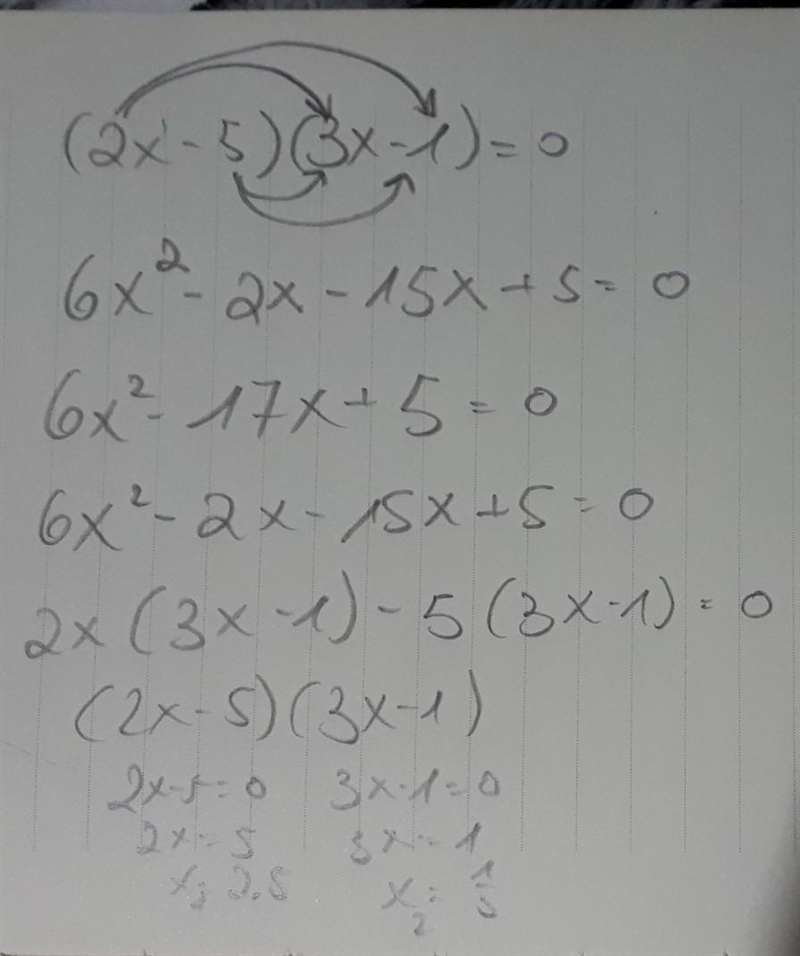 (2x - 5)(3x - 1) = 0
6x² - 2x - 15x + 5 = 0
6x² - 17x + 5 = 0
6x² - 2x - 15x + 5 = 0
2x (3x - 1) - 5 (3x - 1) = 0
(2x - 5)(3x - 1)
2x - 5 = 0 3x - 1 = 0
2x = 5 3x = 1
x = 2.5 x₂ =